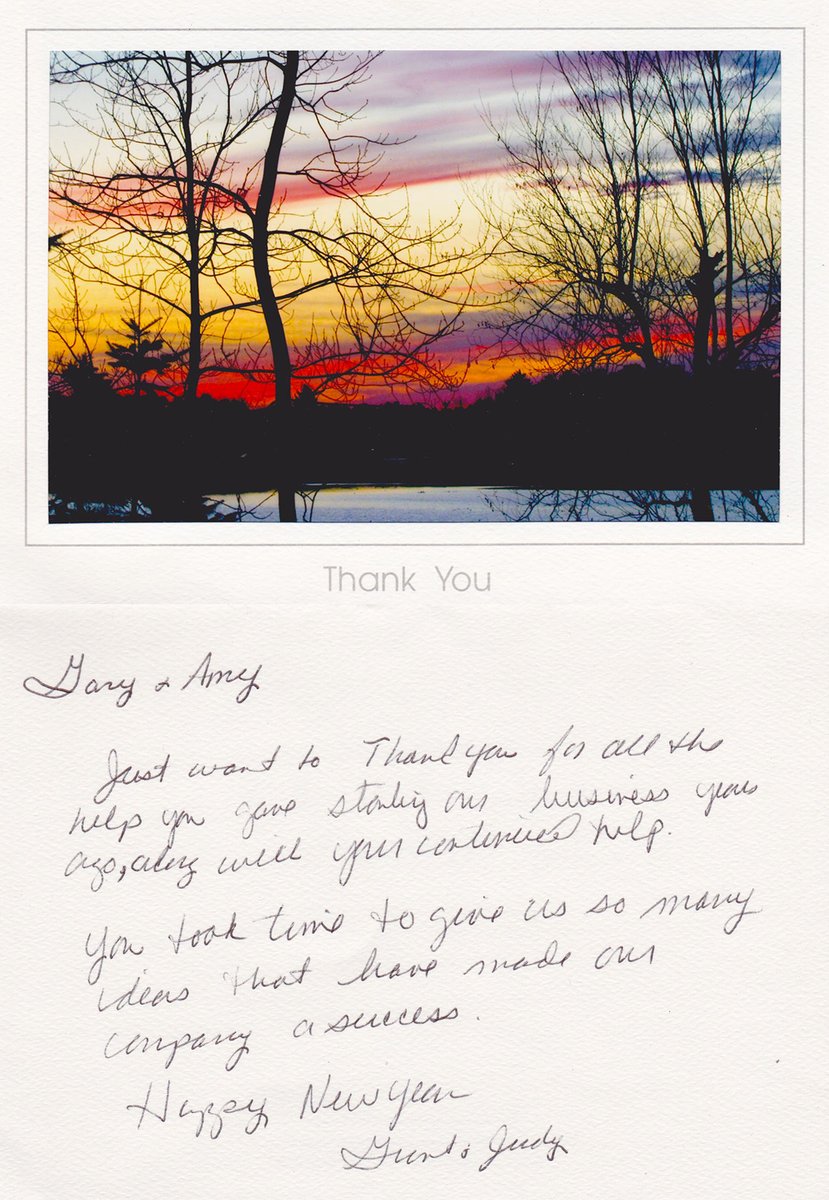 Thank You
Gary & Amy
Just want to Thank you for all the
help you gave starting our business years
ago, along with your continued help.
You took time to give us so many
ideas that have made our
company a success.
Happy New Year
& Judy